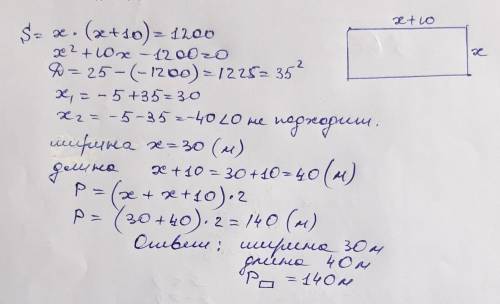 S = x · (x+10) = 1200
x² + 10x - 1200 = 0
D = 25 - (-1200) = 1225 = 35²
x₁ = -5 + 35 = 30
x₂ = -5 - 35 = -40 < 0 не подходит.
ширина x = 30 (м)
длина x + 10 = 30 + 10 = 40 (м)
P = (x + x + 10) · 2
P = (30 + 40) · 2 = 140 (м)
Ответ: ширина 30м
длина 40м
P▭ = 140м
x+10
x